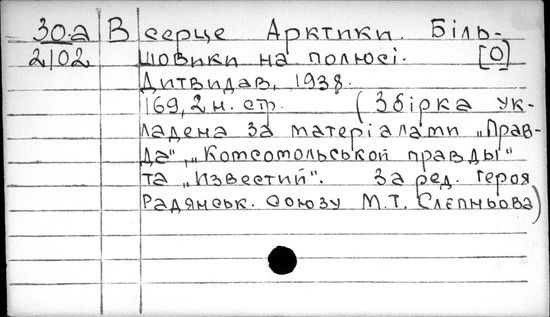 30.а В серце Арктики. Біль-
2102 шовики на полюсі. [О]
Дитвидав, 1938.
169, 2 н. стр. (Збірка ук-
ладена за матеріалами „Прав-
да", „Комсомольской правды"
та „Известий". За ред. героя
Радянськ. союзу М.Т. Слєпньова)